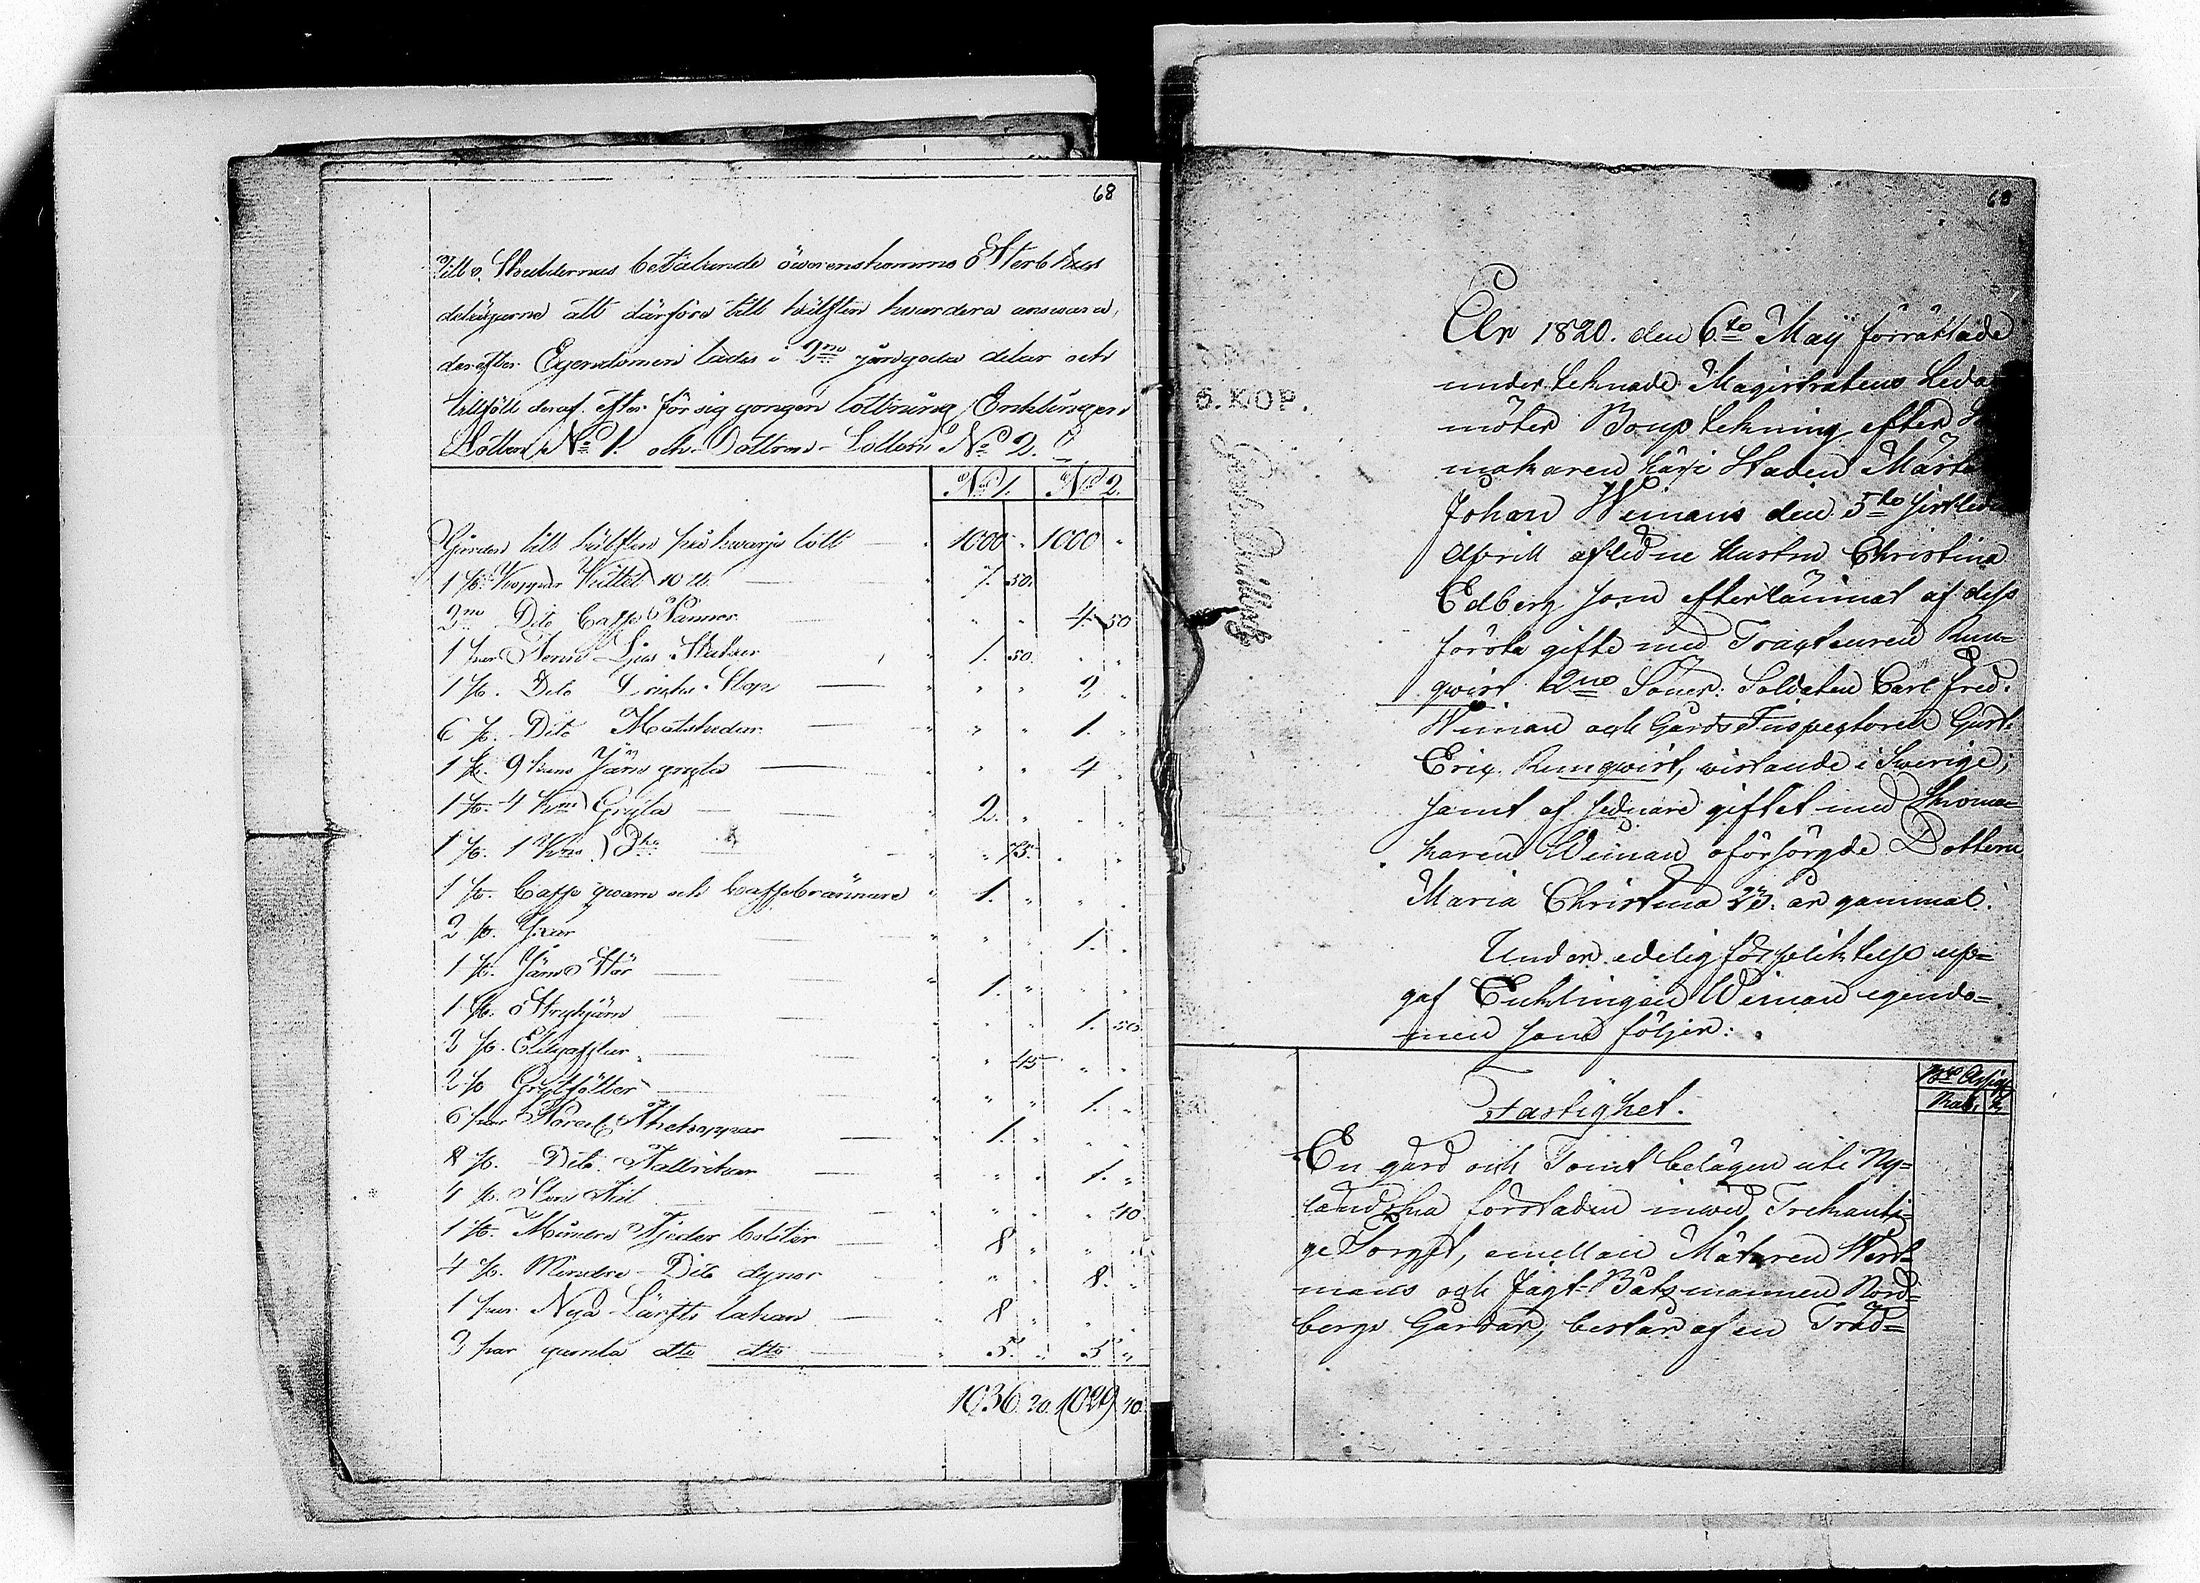 68
Till Skuldernas betalande öwerenskommo Sterbhus
delägarne att därföre till hälften hwardera answara,
derefter Egendomen lades i 2ne jämgoda delar och
tillföll deraf efter för sig gongen lottning Enklingen
Lotten No 1. och Dottren Lotten No 2.
No 1. No 2.
Gården till hälften på hwarje lott 1000 " 1000 "
1 st. Koppar Kittel 10 lb 7. 50.
2ne Dito Caffe Pannor 4. 50
1 par Ljus Stakar 1. 50.
1 st. Dito Stop 2
6 st. Dito Matskedar 1.
1 st. 9 kans Järn gryta 4
1 st. 4 kns Gryta 2.
1 st. 1 kns Do 75.
1 st. Caffe qwarn och Caffebrännare 1.
2 st. Yxar 1.
1 st. Järn Stör 1.
1 st. Strykjärn 1. 50.
2 st. Eldgafflar 45
2 st Grytfötter 1.
6 par Theekoppar 1.
8 st. Dito Tallrikar 1.
4 st. 40.
1 st. Fjeder bolster 8
4 st. Mindre Dito dynor 8.
1 par Nya Lärfts lakan 8
3 par gamla dto dto 5. 5
1036. 20. 1029 40.
68
År 1820. den 6te Maÿ förrättade
undertecknade Magistratens Leda
möter Bouptekning efter
makaren här i Staden
Johan Weimans den 5te sistledne
Aprill afledne hustru Christina
Edberg som efterlämnat af dess
första gifte med Tracteuren Run=
qwist 2ne Söner: Soldaten Carl Fred.
Weiman och Gårds Inspectoren
Eric Runqwist, wistande i Swerige;
samt af sednare giftet med Skoma=
karen Weiman oförsörgde Dottern
Maria Christina 23. år gammal.
Under edelig förpliktelse upp=
gaf Enklingen Weiman egendo=
men som följer:
5. KOP.
Bco Assign
Rub. k
Fastighet.
En gård och Tomt belägen uti Ny=
landska förstaden inwid Trekanti=
ge Torget, emellan Mätaren West=
mans och Jagt-Båtsmannen Nord=
bergs Gårdar, består af en Träd=